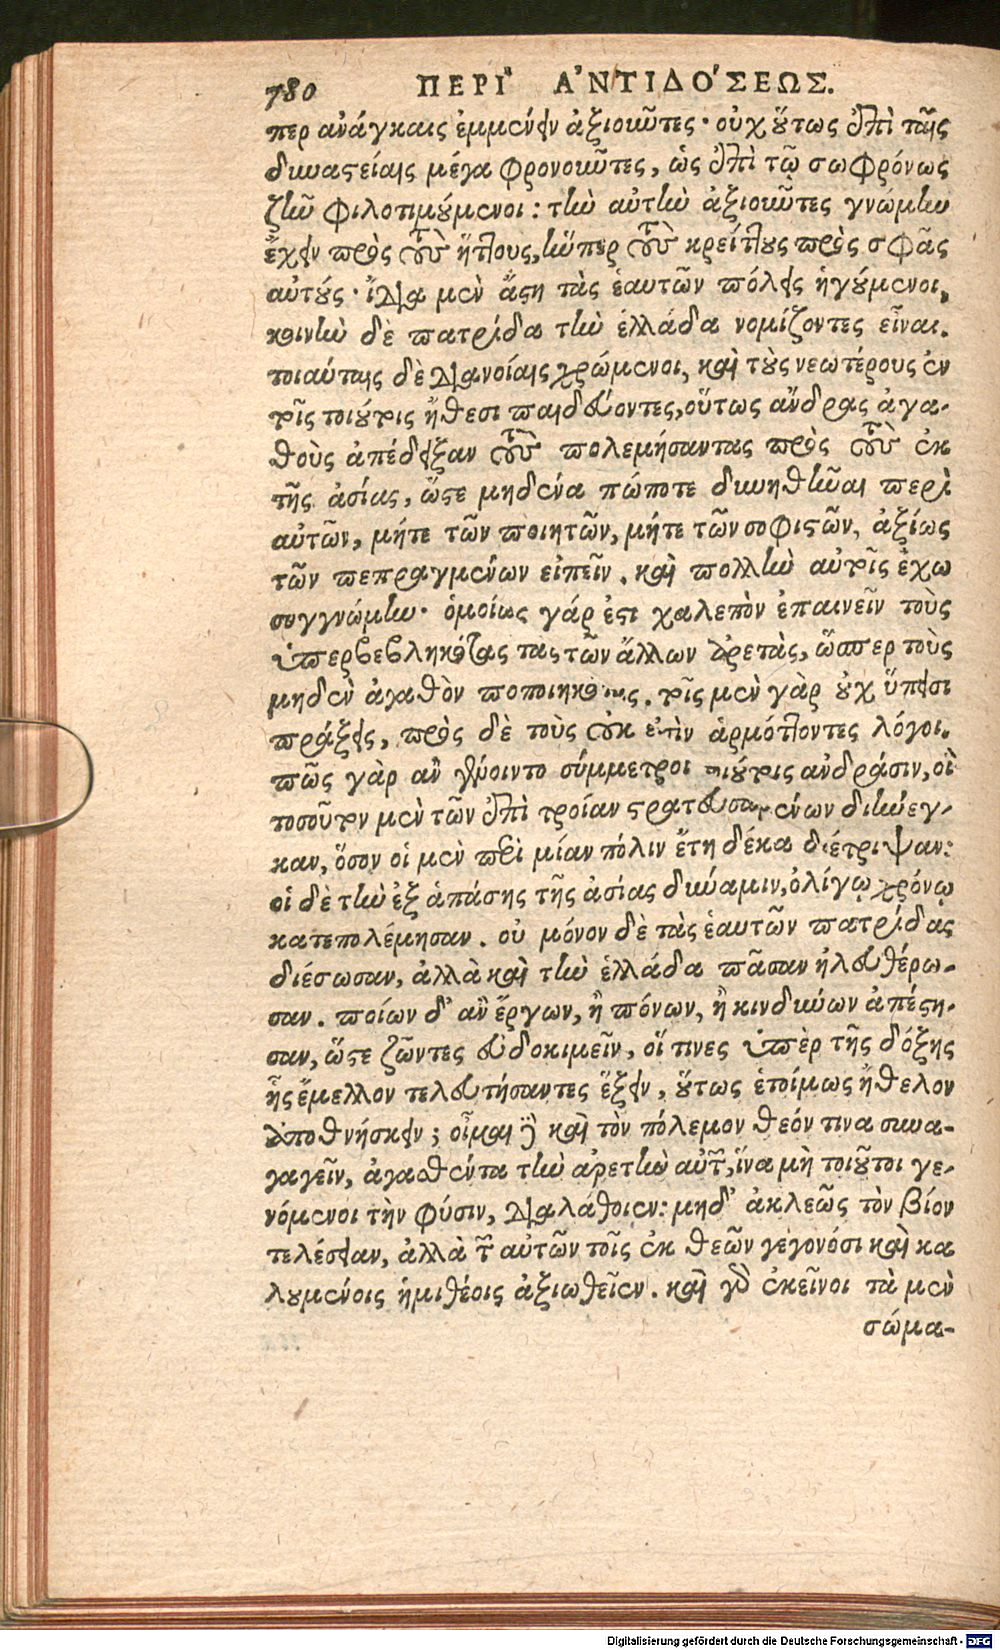 780 ΠΕΡΙ' Α'ΝΤΙΔΟ'ΣΕΩΣ.
περ ἀνάγκαις ἐμμένειν ἀξιοῦντες· οὐχ οὕτως ἐπὶ ταῖς
δυναστείαις μέγα φρονοῦντες, ὡς ἐπὶ τῷ σωφρόνως
ζῆν φιλοτιμούμενοι: τὴν αὐτὴν ἀξιοῦντες γνώμην
ἔχειν πρὸς τοὺς ἥττους, ἥνπερ τοὺς κρείττους πρὸς σφᾶς
αὐτούς· ἴδια μὲν ἄστη τὰς ἑαυτῶν πόλεις ἡγούμενοι,
κοινὴν δὲ πατρίδα τὴν ἑλλάδα νομίζοντες εἶναι.
τοιαύταις δὲ διανοίαις χρώμενοι, καὶ τοὺς νεωτέρους ἐν
τοῖς τοιούτοις ἤθεσι παιδεύοντες, οὕτως ἄνδρας ἀγα-
θοὺς ἀπέδειξαν τοὺς πολεμήσαντας πρὸς τοὺς ἐκ
τῆς ἀσίας, ὥστε μηδένα πώποτε δυνηθῆναι περὶ
αὐτῶν, μήτε τῶν ποιητῶν, μήτε τῶν σοφιστῶν, ἀξίως
τῶν πεπραγμένων εἰπεῖν. καὶ πολλὴν αὐτοῖς ἔχω
συγγνώμην· ὁμοίως γάρ ἐστι χαλεπὸν ἐπαινεῖν τοὺς
ὑπερβεβληκότας τας τῶν ἄλλων ἀρετὰς, ὥσπερ τοὺς
μηδὲν ἀγαθὸν ποποιηκότας. τοῖς μὲν γὰρ οὐχ ὕπεισι
πράξεις, πρὸς δὲ τοὺς οὐκ εἰσὶν ἁρμόττοντες λόγοι.
πῶς γὰρ ἂν γένοιντο σύμμετροι τοιούτοις ἀνδράσιν, οἳ
τοσοῦτον μὲν τῶν ἐπὶ τροίαν στρατευσαμένων διήνεγ-
καν, ὅσον οἱ μὲν περὶ μίαν πόλιν ἔτη δέκα διέτριψαν:
οἱ δὲ τὴν ἐξ ἁπάσης τῆς ἀσίας δύναμιν, ὀλίγῳ χρόνῳ
κατεπολέμησαν. οὐ μόνον δὲ τὰς ἑαυτῶν πατρίδας
διέσωσαν, ἀλλὰ καὶ τὴν ἑλλάδα πᾶσαν ἠλευθέρω-
σαν. ποίων δ' ἂν ἔργων, ἢ πόνων, ἢ κινδύνων ἀπέστη-
σαν, ὥστε ζῶντες εὐδοκιμεῖν, οἵ τινες ὑπὲρ τῆς δόξης
ἧς ἔμελλον τελευτήσαντες ἕξειν, οὕτως ἑτοίμως ἤθελον
ἀποθνήσκειν; οἶμαι δὲ καὶ τὸν πόλεμον θεόν τινα συνα-
γαγεῖν, ἀγαθέντα τὴν ἀρετὴν αὐτῶν, ἵνα μὴ τοιοῦτοι γε-
νόμενοι τὴν φύσιν, διαλάθοιεν: μηδ' ἀκλεῶς τὸν βίον
τελέσειαν, ἀλλὰ τῶν αὐτῶν τοῖς ἐκ θεῶν γεγονόσι καὶ κα
λουμένοις ἡμιθέοις ἀξιωθεῖεν. καὶ γὰρ ἐκεῖνοι τὰ μὲν
σώμα-
Digitalisierung gefördert durch die Deutsche Forschungsgemeinschaft - DFG